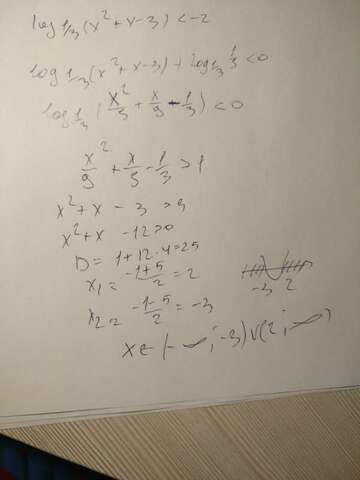 log 1/3 (x² + x - 3) < -2
log 1/3 (x² + x - 3) + log 1/3 1/9 < 0
log 1/3 (x²/9 + x/9 - 1/3) < 0
x²/9 + x/9 - 1/3 > 1
x² + x - 3 > 9
x² + x - 12 > 0
D = 1 + 12 · 4 = 25
x₁ = -1+5/2 = 2
-3 2
x₂ = -1-5/2 = -3
x ∈ (-∞; -3) ∪ (2; ∞)